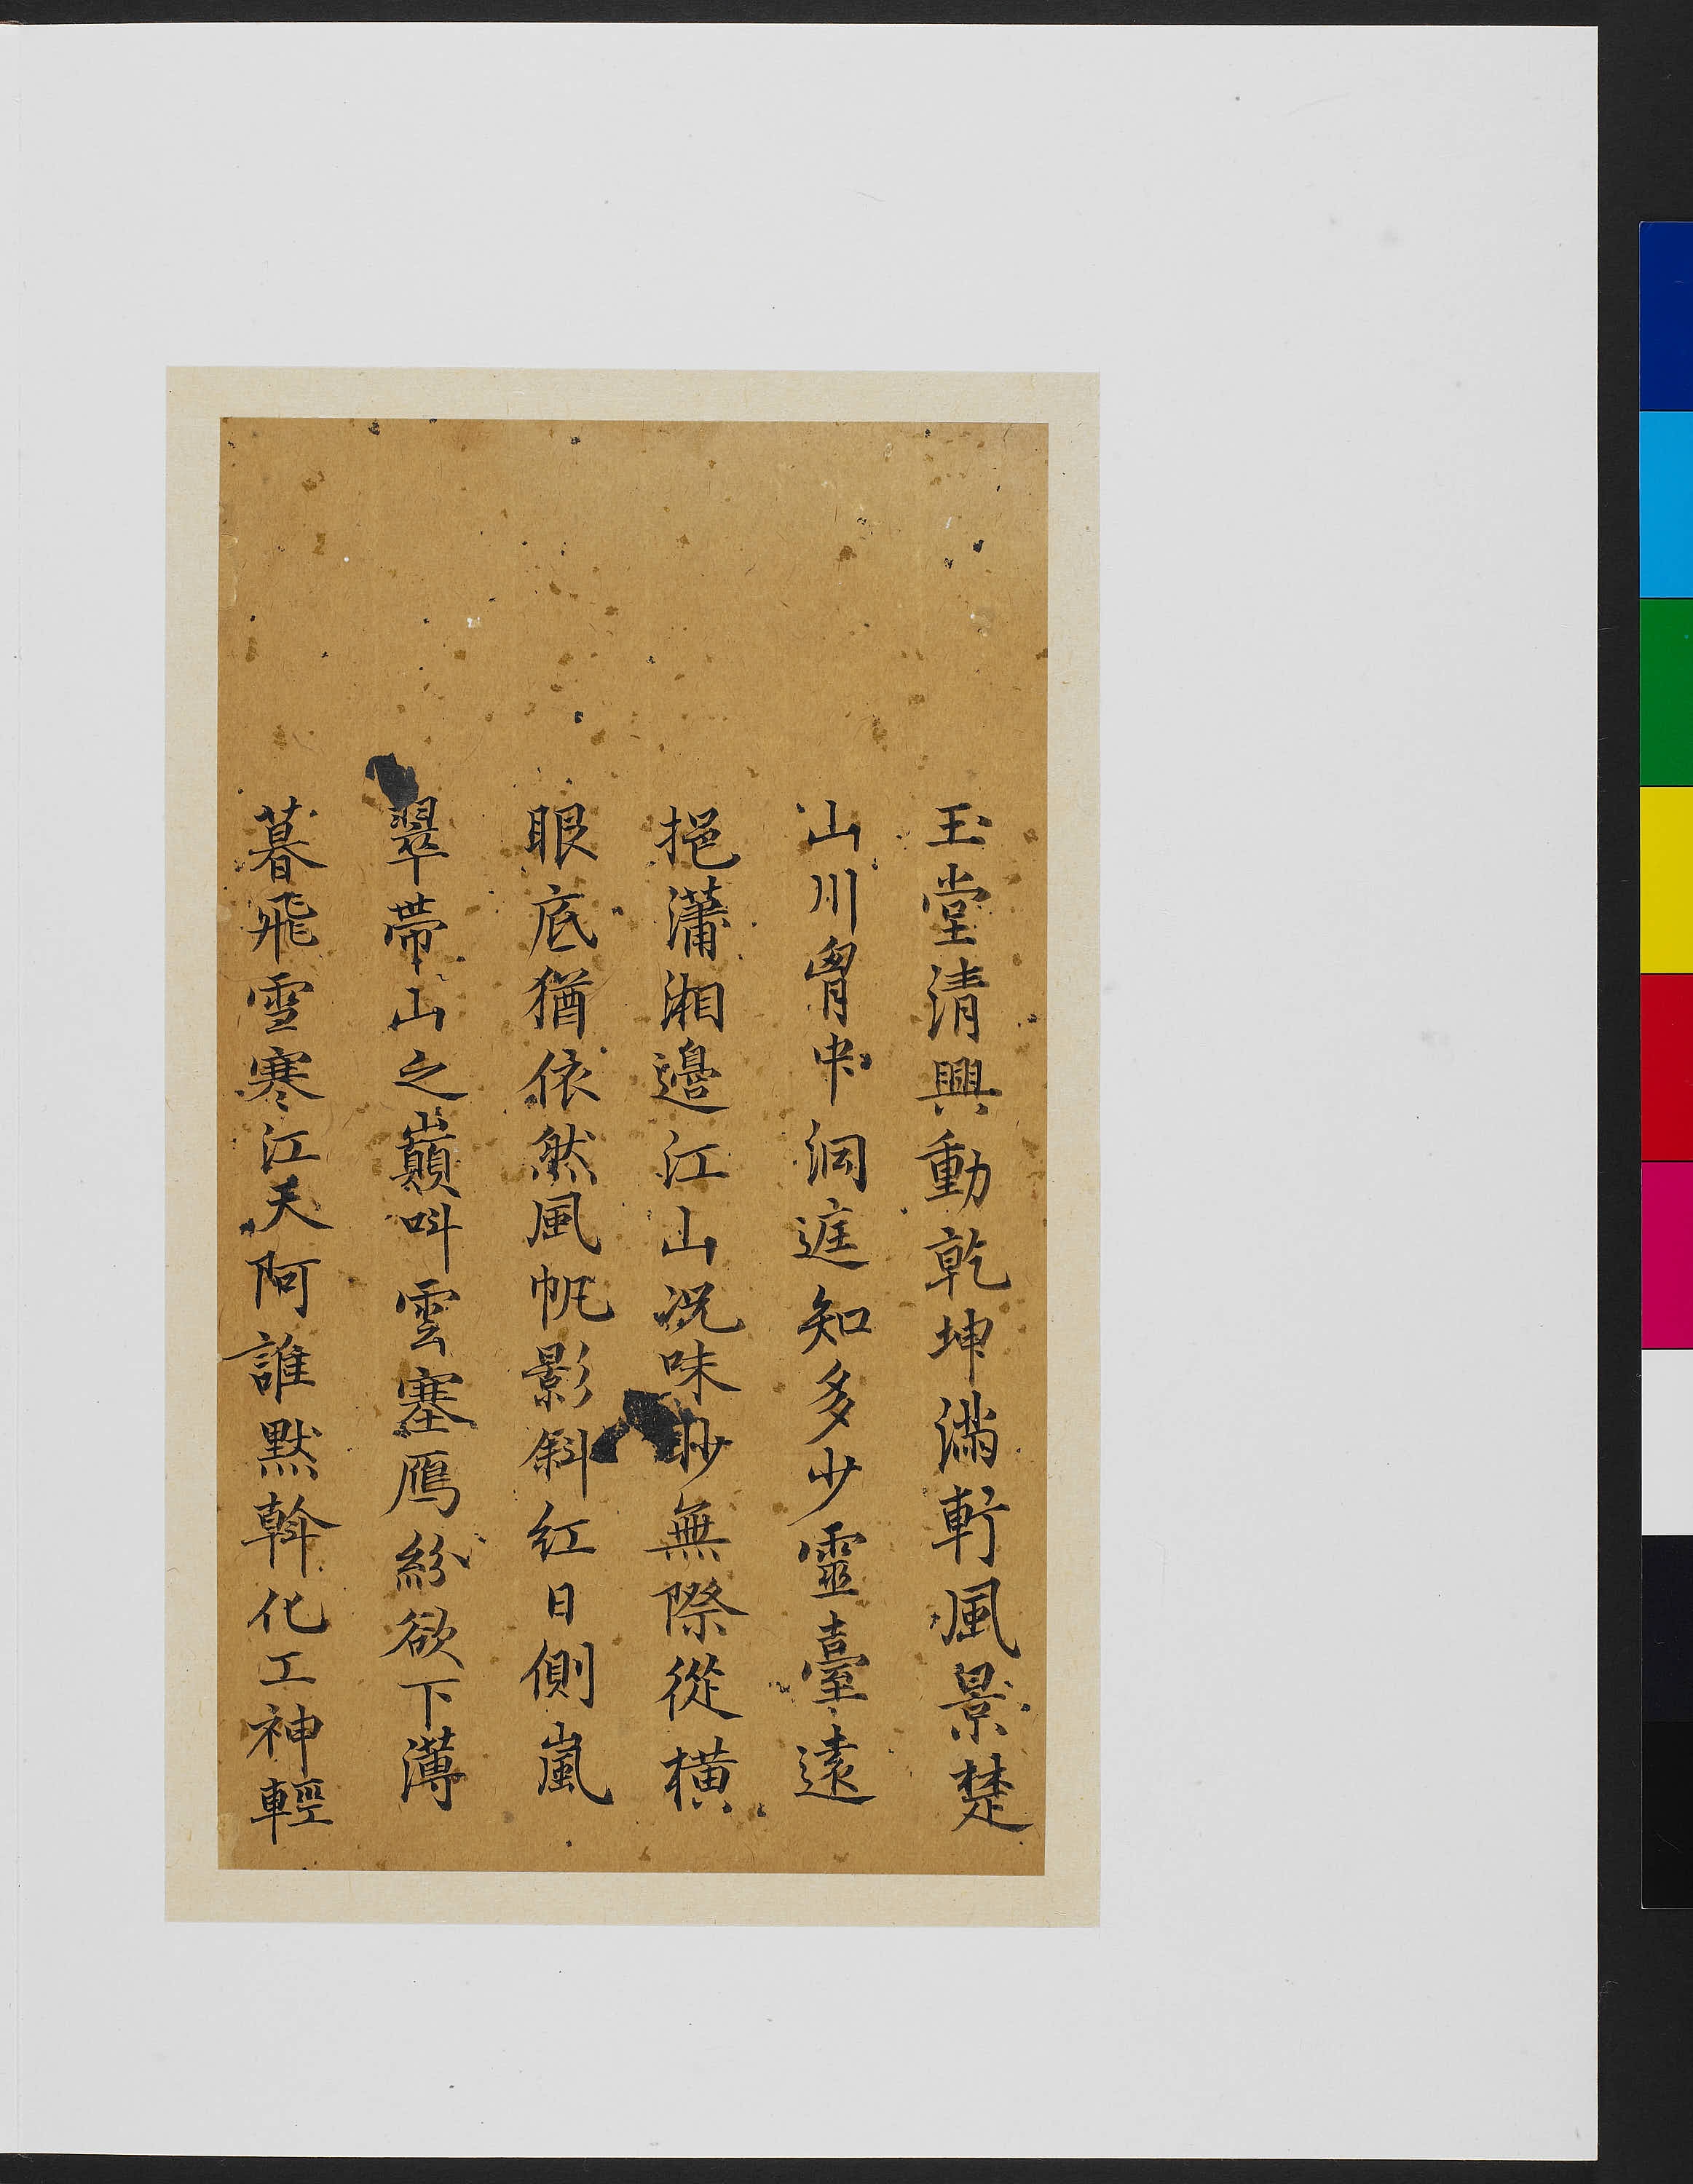 玉堂清興動乾坤滿軒風景楚
山川胷中洞庭知多少靈臺遠
挹瀟湘邊江山况味眇無際從橫
眼底猶依然風帆影斜紅日側嵐
翠帶山之巔呌雲塞鴈紛欲下薄
暮飛雪寒江天阿誰默斡化工神輕